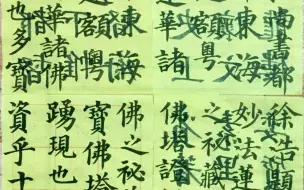 尚書都
東海
粵
華諸
東海
粵
華諸佛
也多寶
徐浩題
妙法蓮
之秘藏
佛塔證
佛之秘
寶佛塔
踴現也
資乎十